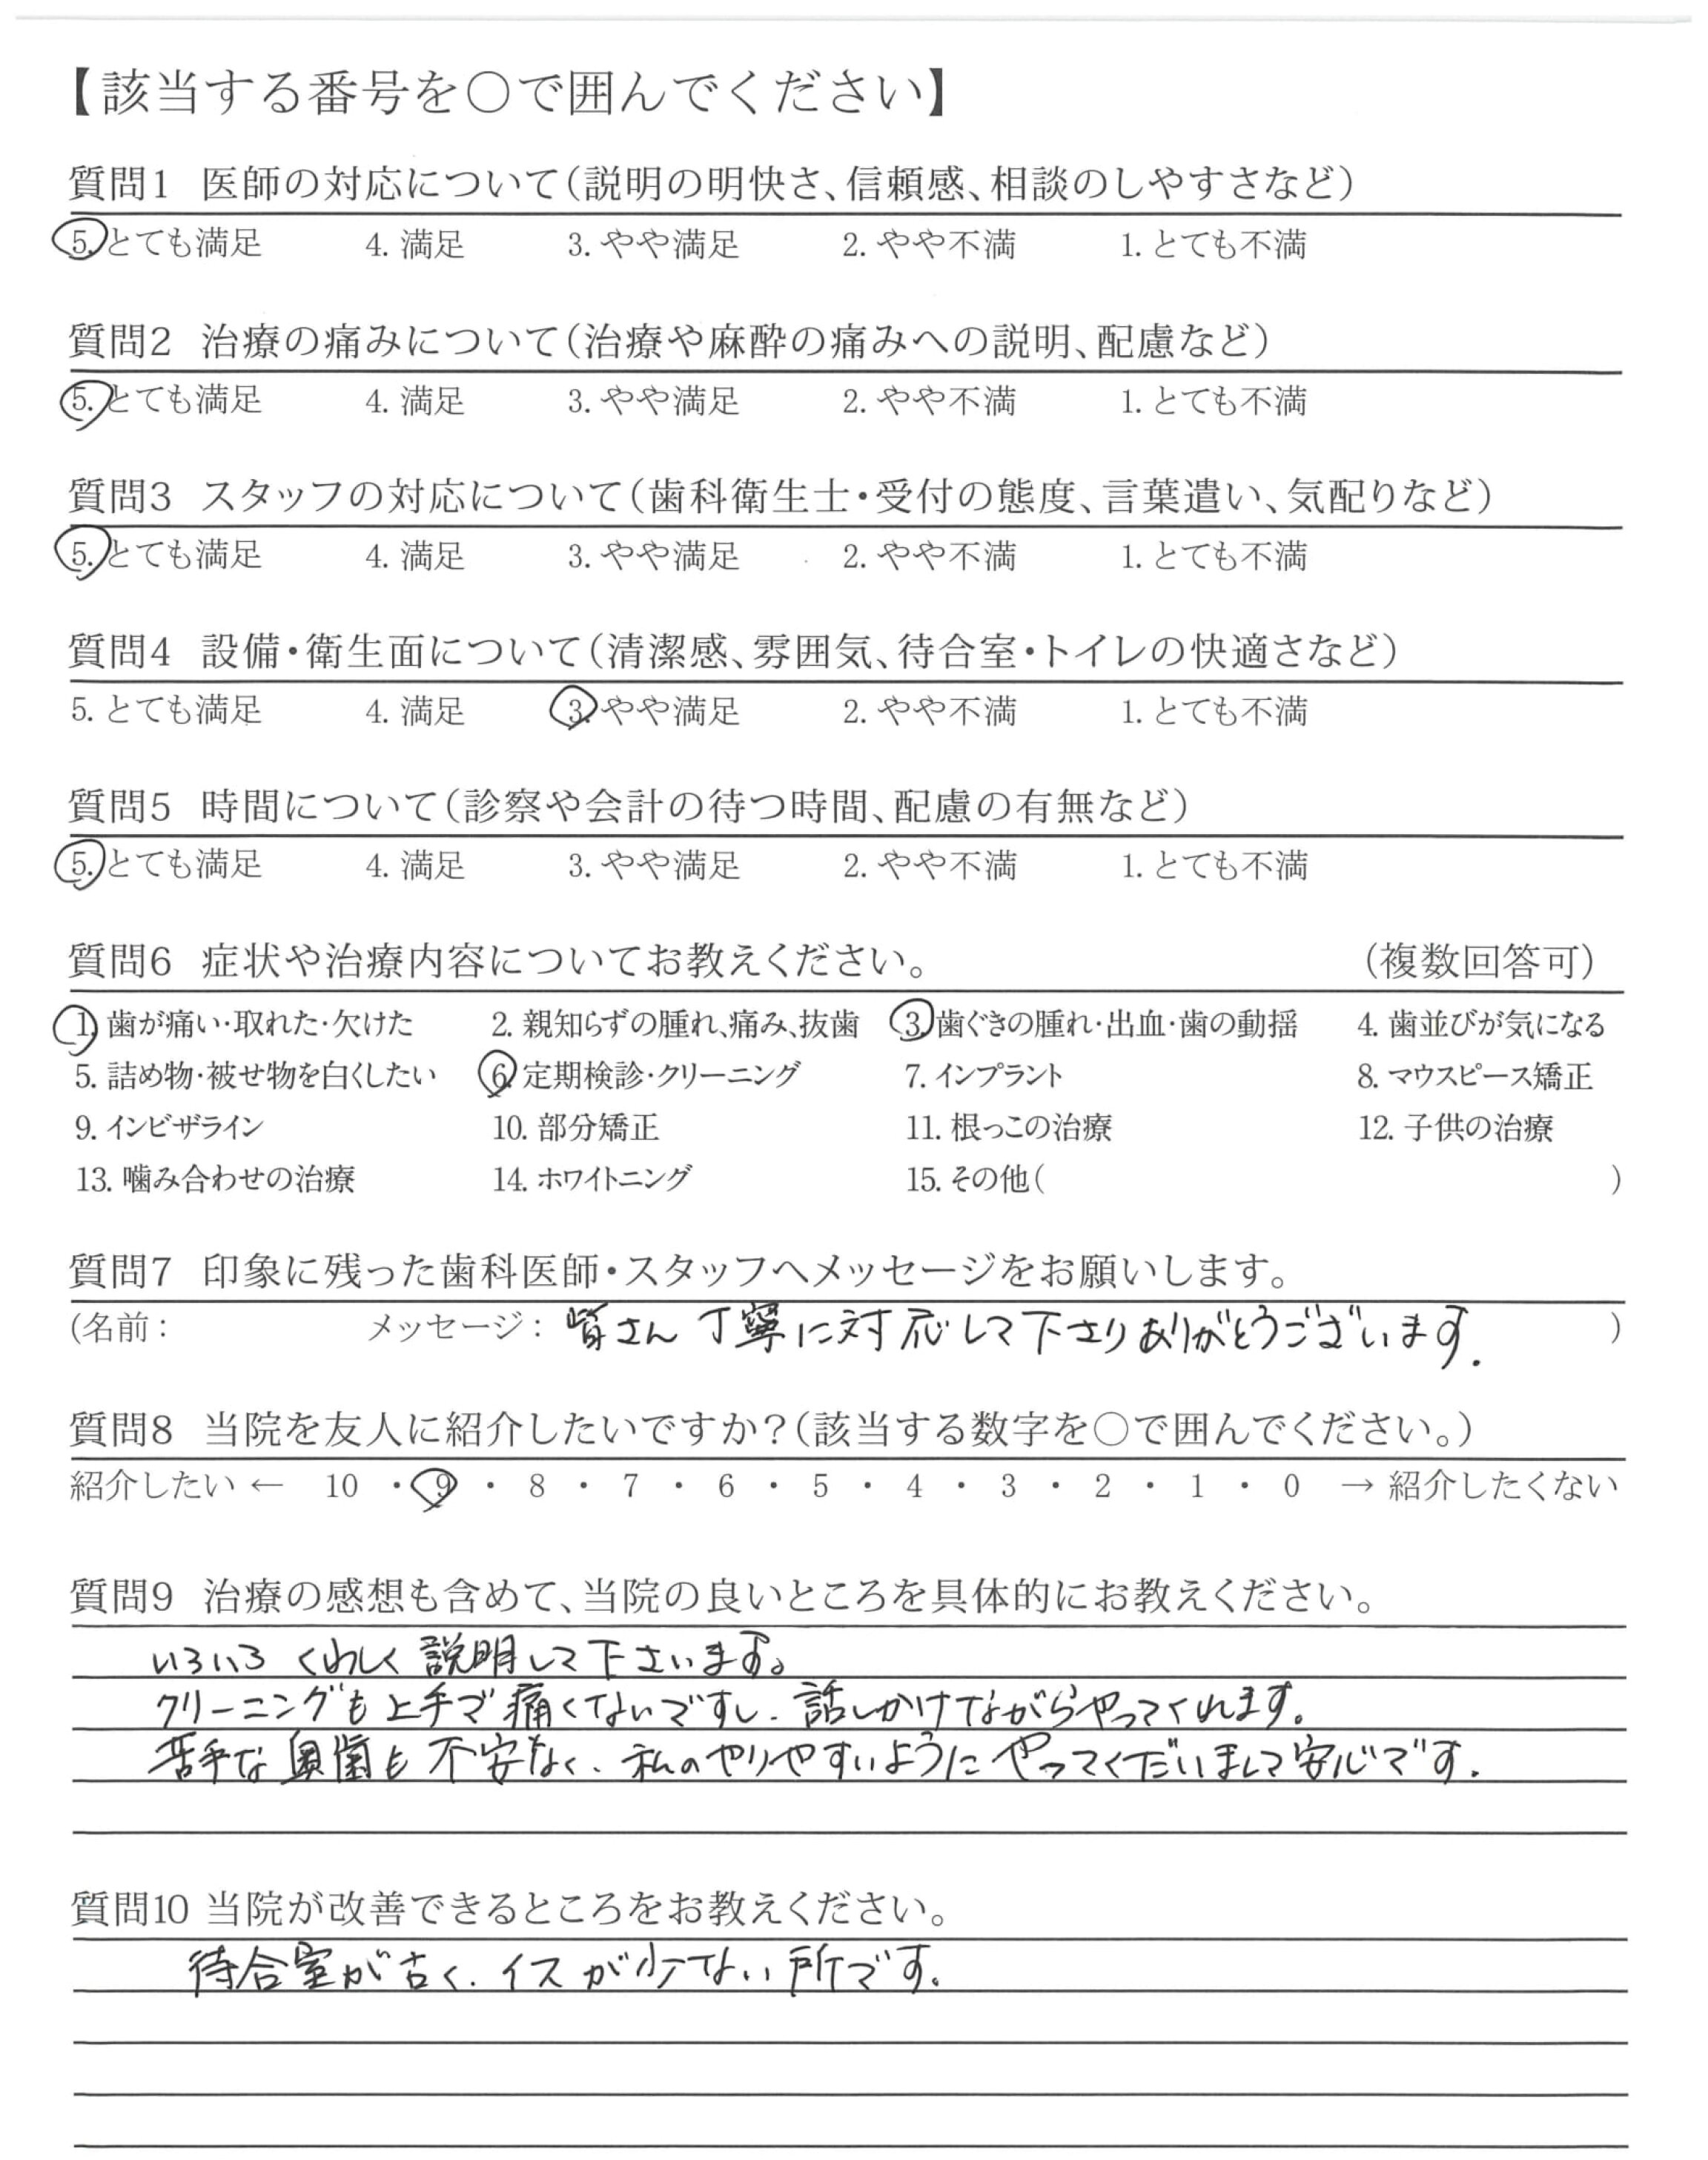 【該当する番号を○で囲んでください】
質問1 医師の対応について(説明の明快さ、信頼感、相談のしやすさなど)
5. とても満足 4. 満足 3. やや満足 2. やや不満 1. とても不満
質問2 治療の痛みについて(治療や麻酔の痛みへの説明、配慮など)
5. とても満足 4. 満足 3. やや満足 2. やや不満 1. とても不満
質問3 スタッフの対応について(歯科衛生士・受付の態度、言葉遣い、気配りなど)
5. とても満足 4. 満足 3. やや満足 2. やや不満 1. とても不満
質問4 設備・衛生面について(清潔感、雰囲気、待合室・トイレの快適さなど)
5. とても満足 4. 満足 3. やや満足 2. やや不満 1. とても不満
質問5 時間について(診察や会計の待つ時間、配慮の有無など)
5. とても満足 4. 満足 3. やや満足 2. やや不満 1. とても不満
質問6 症状や治療内容についてお教えください。 (複数回答可)
1. 歯が痛い・取れた・欠けた 2. 親知らずの腫れ、痛み、抜歯 3. 歯ぐきの腫れ・出血・歯の動揺 4. 歯並びが気になる
5. 詰め物・被せ物を白くしたい 6. 定期検診・クリーニング 7. インプラント 8. マウスピース矯正
9. インビザライン 10. 部分矯正 11. 根っこの治療 12. 子供の治療
13. 噛み合わせの治療 14. ホワイトニング 15. その他( )
質問7 印象に残った歯科医師・スタッフへメッセージをお願いします。
(名前: メッセージ: 皆さん丁寧に対応して下さりありがとうございます. )
質問8 当院を友人に紹介したいですか?(該当する数字を○で囲んでください。)
紹介したい ← 10 ・ 9 ・ 8 ・ 7 ・ 6 ・ 5 ・ 4 ・ 3 ・ 2 ・ 1 ・ 0 → 紹介したくない
質問9 治療の感想も含めて、当院の良いところを具体的にお教えください。
いろいろくわしく説明して下さいます。
クリーニングも上手で痛くないですし、話しかけながらやってくれます。
苦手な奥歯も不安なく、私のやりやすいようにやってくださいまして安心です.
質問10 当院が改善できるところをお教えください。
待合室が古く、イスが少ない所です。